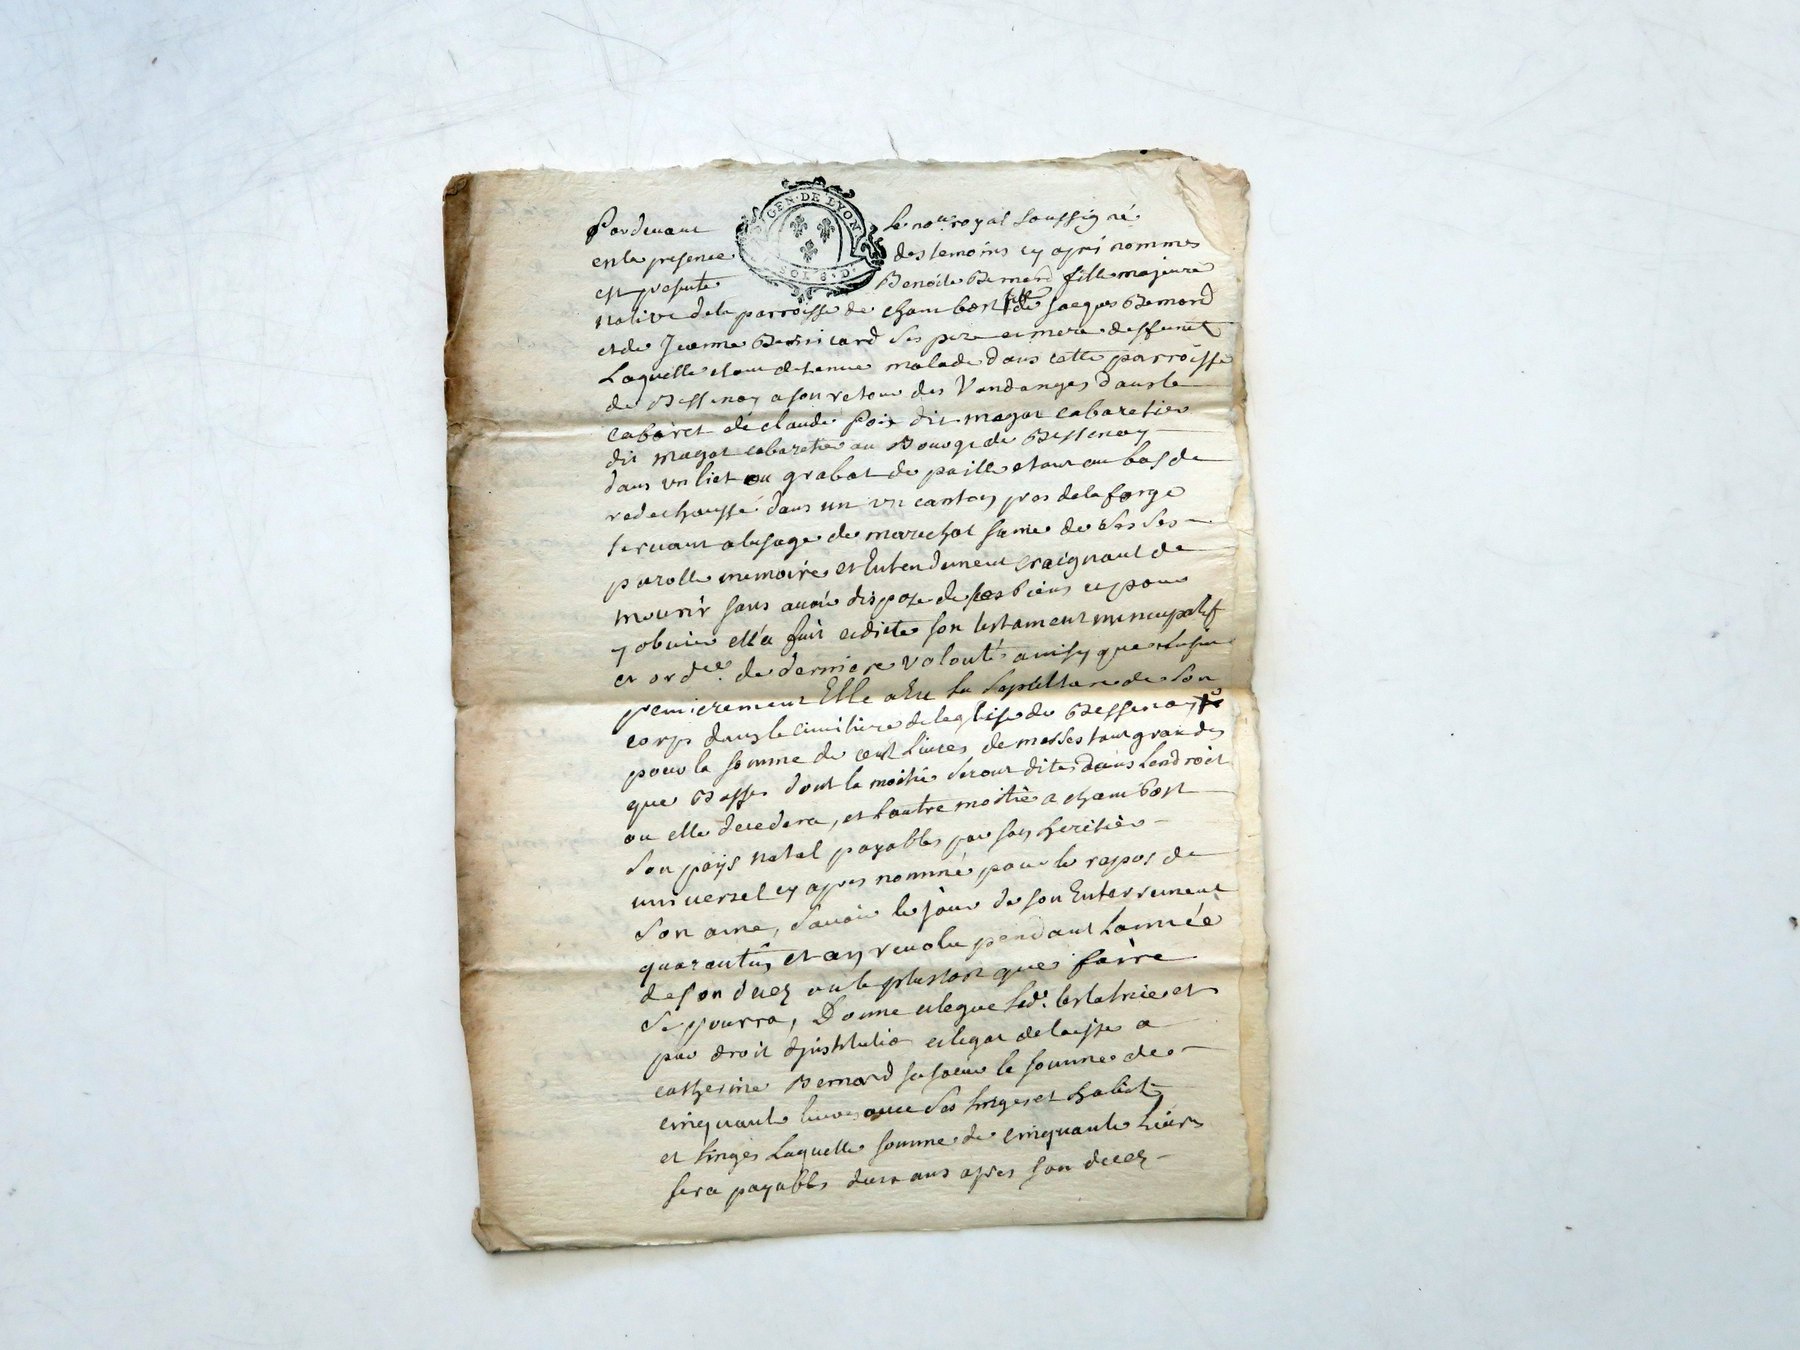 GEN. DE LYON
SOLS. D.
Pardevant le nore. royal soussigné
en la presence des temoins cy apres nommes
est presente Benoite Bernard fille majeure
native de la parroisse de chambost fille de Jacques Bernard
et de Jeanne ses pere et mere deffunt
Laquelle etant detenue malade dans cette parroisse
de Bessenay a son retour des Vendanges dans le
cabaret de claude Poix dit magat cabaretier
dit magat cabaretier au Bourg de Bessenay
dans un liet ou grabat de paille etant au bas de
redechaussé dans un un canton pres de la forge
servant a lusage de marechal saine de ses ses
parolle memoire et Entendement craignant de
mourir sans avoir disposé de ses biens et pour
y obvier ella fait et dicté son testament nuncupatif
et ordce. de derniere volonté ainsy que sensuit
premierement Elle a Elu sa sepulture de son
corps dans le cimitiere de leglise de Bessenay
pour la somme de cent Livres de messes tant grandes
que Basses dont la moitié seront dites dans Lendroit
ou elle decedera, et Lautre moitié a chambost
son pays natal payables par son heritier
universel cy apres nommé pour le repos de
son ame, savoir le jour de son Enterrement
quarantin et an revolu pendant Lannée
de son decez ou le plustost que faire
se pourra, Donne et legue lad. testatrice et
par droit dinstitution et legat delaisse a
catherine Bernard sa soeur la somme de
cinquante livres avec ses linges et habits
et linges Laquelle somme de cinquante Livres
sera payable deux ans apres son decez